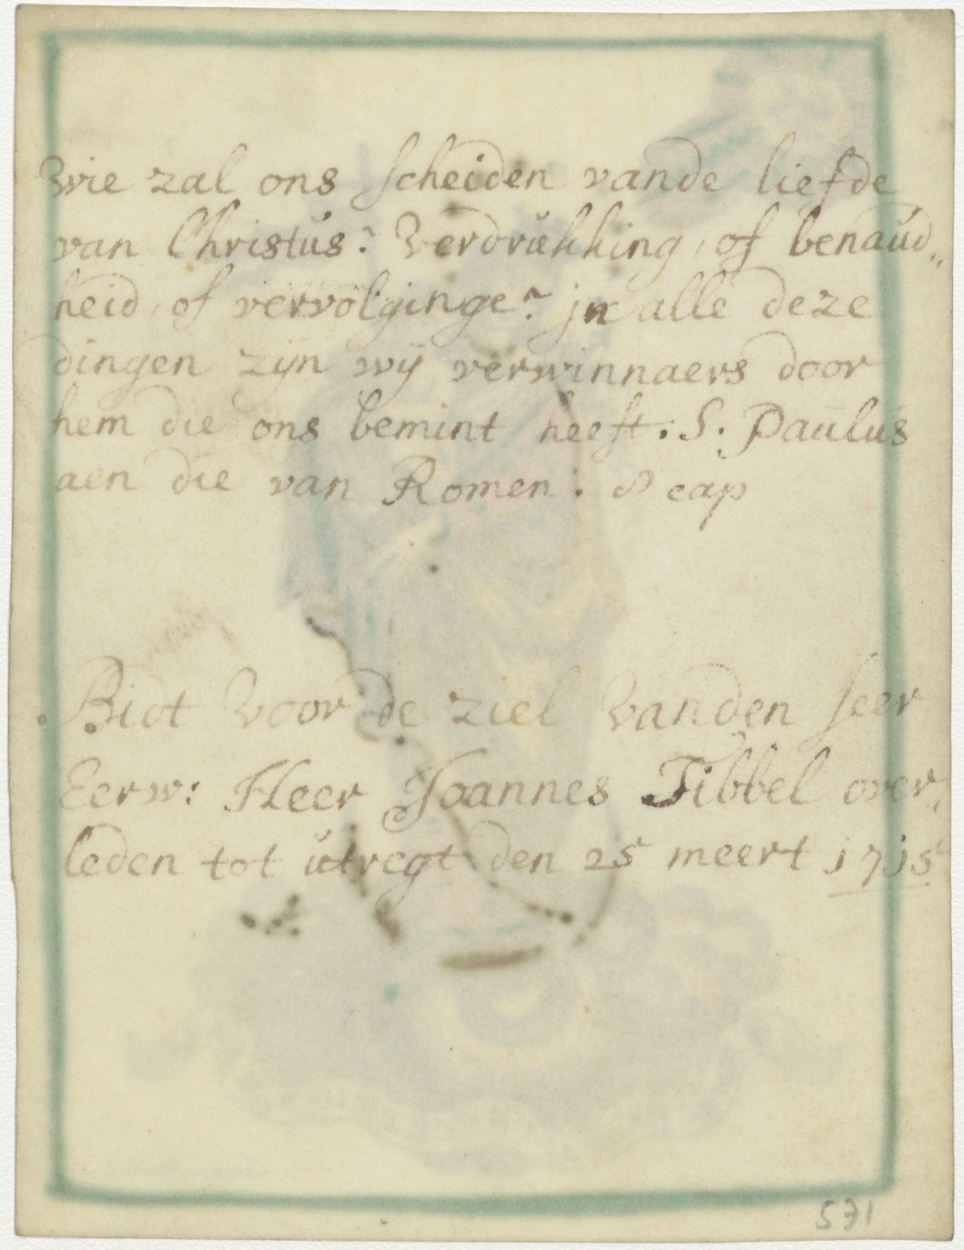 Wie zal ons scheiden vande liefde
van Christus? Verdrukking, of benaud„
heid, of vervolginge? jn alle deze
dingen zijn wij verwinnaers door
hem die ons bemint heeft: S. Paulus
aen die van Romen. 8 cap
Bidt voor de ziel vanden seer
Eerw: Heer Joannes Tibbel over„
leden tot utregt den 25 meert 1715
571